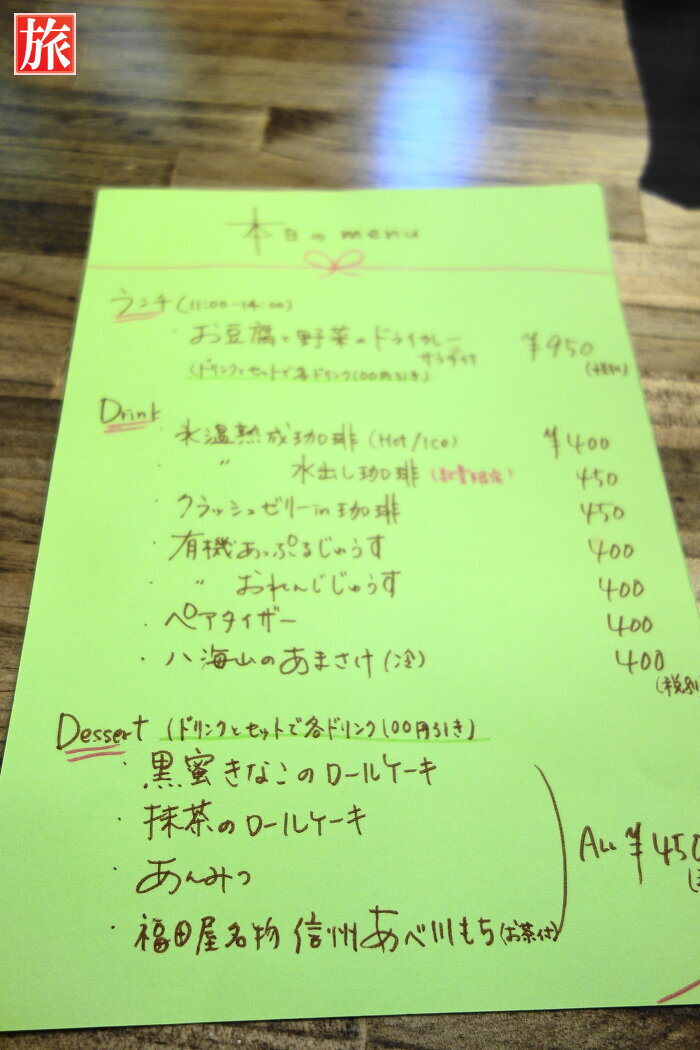 旅
本日のmenu
ランチ (11:00-14:00)
・お豆腐と野菜のドライカレー ¥950
サラダ付
(ドリンクとセットで各ドリンク100円引き)
Drink
・氷温熟成珈琲 (Hot/Ice) ¥400
・ 〃 水出し珈琲 (数量限定) 450
・クラッシュゼリーin珈琲 450
・有機あっぷるじゅうす 400
・ 〃 おれんじじゅうす 400
・ペアタイザー 400
・八海山のあまさけ (冷) 400
(税別
Dessert (ドリンクとセットで各ドリンク100円引き)
・黒蜜きなこのロールケーキ
・抹茶のロールケーキ
・あんみつ
ALL ¥450
・福田屋名物 信州あべ川もち (お茶付)